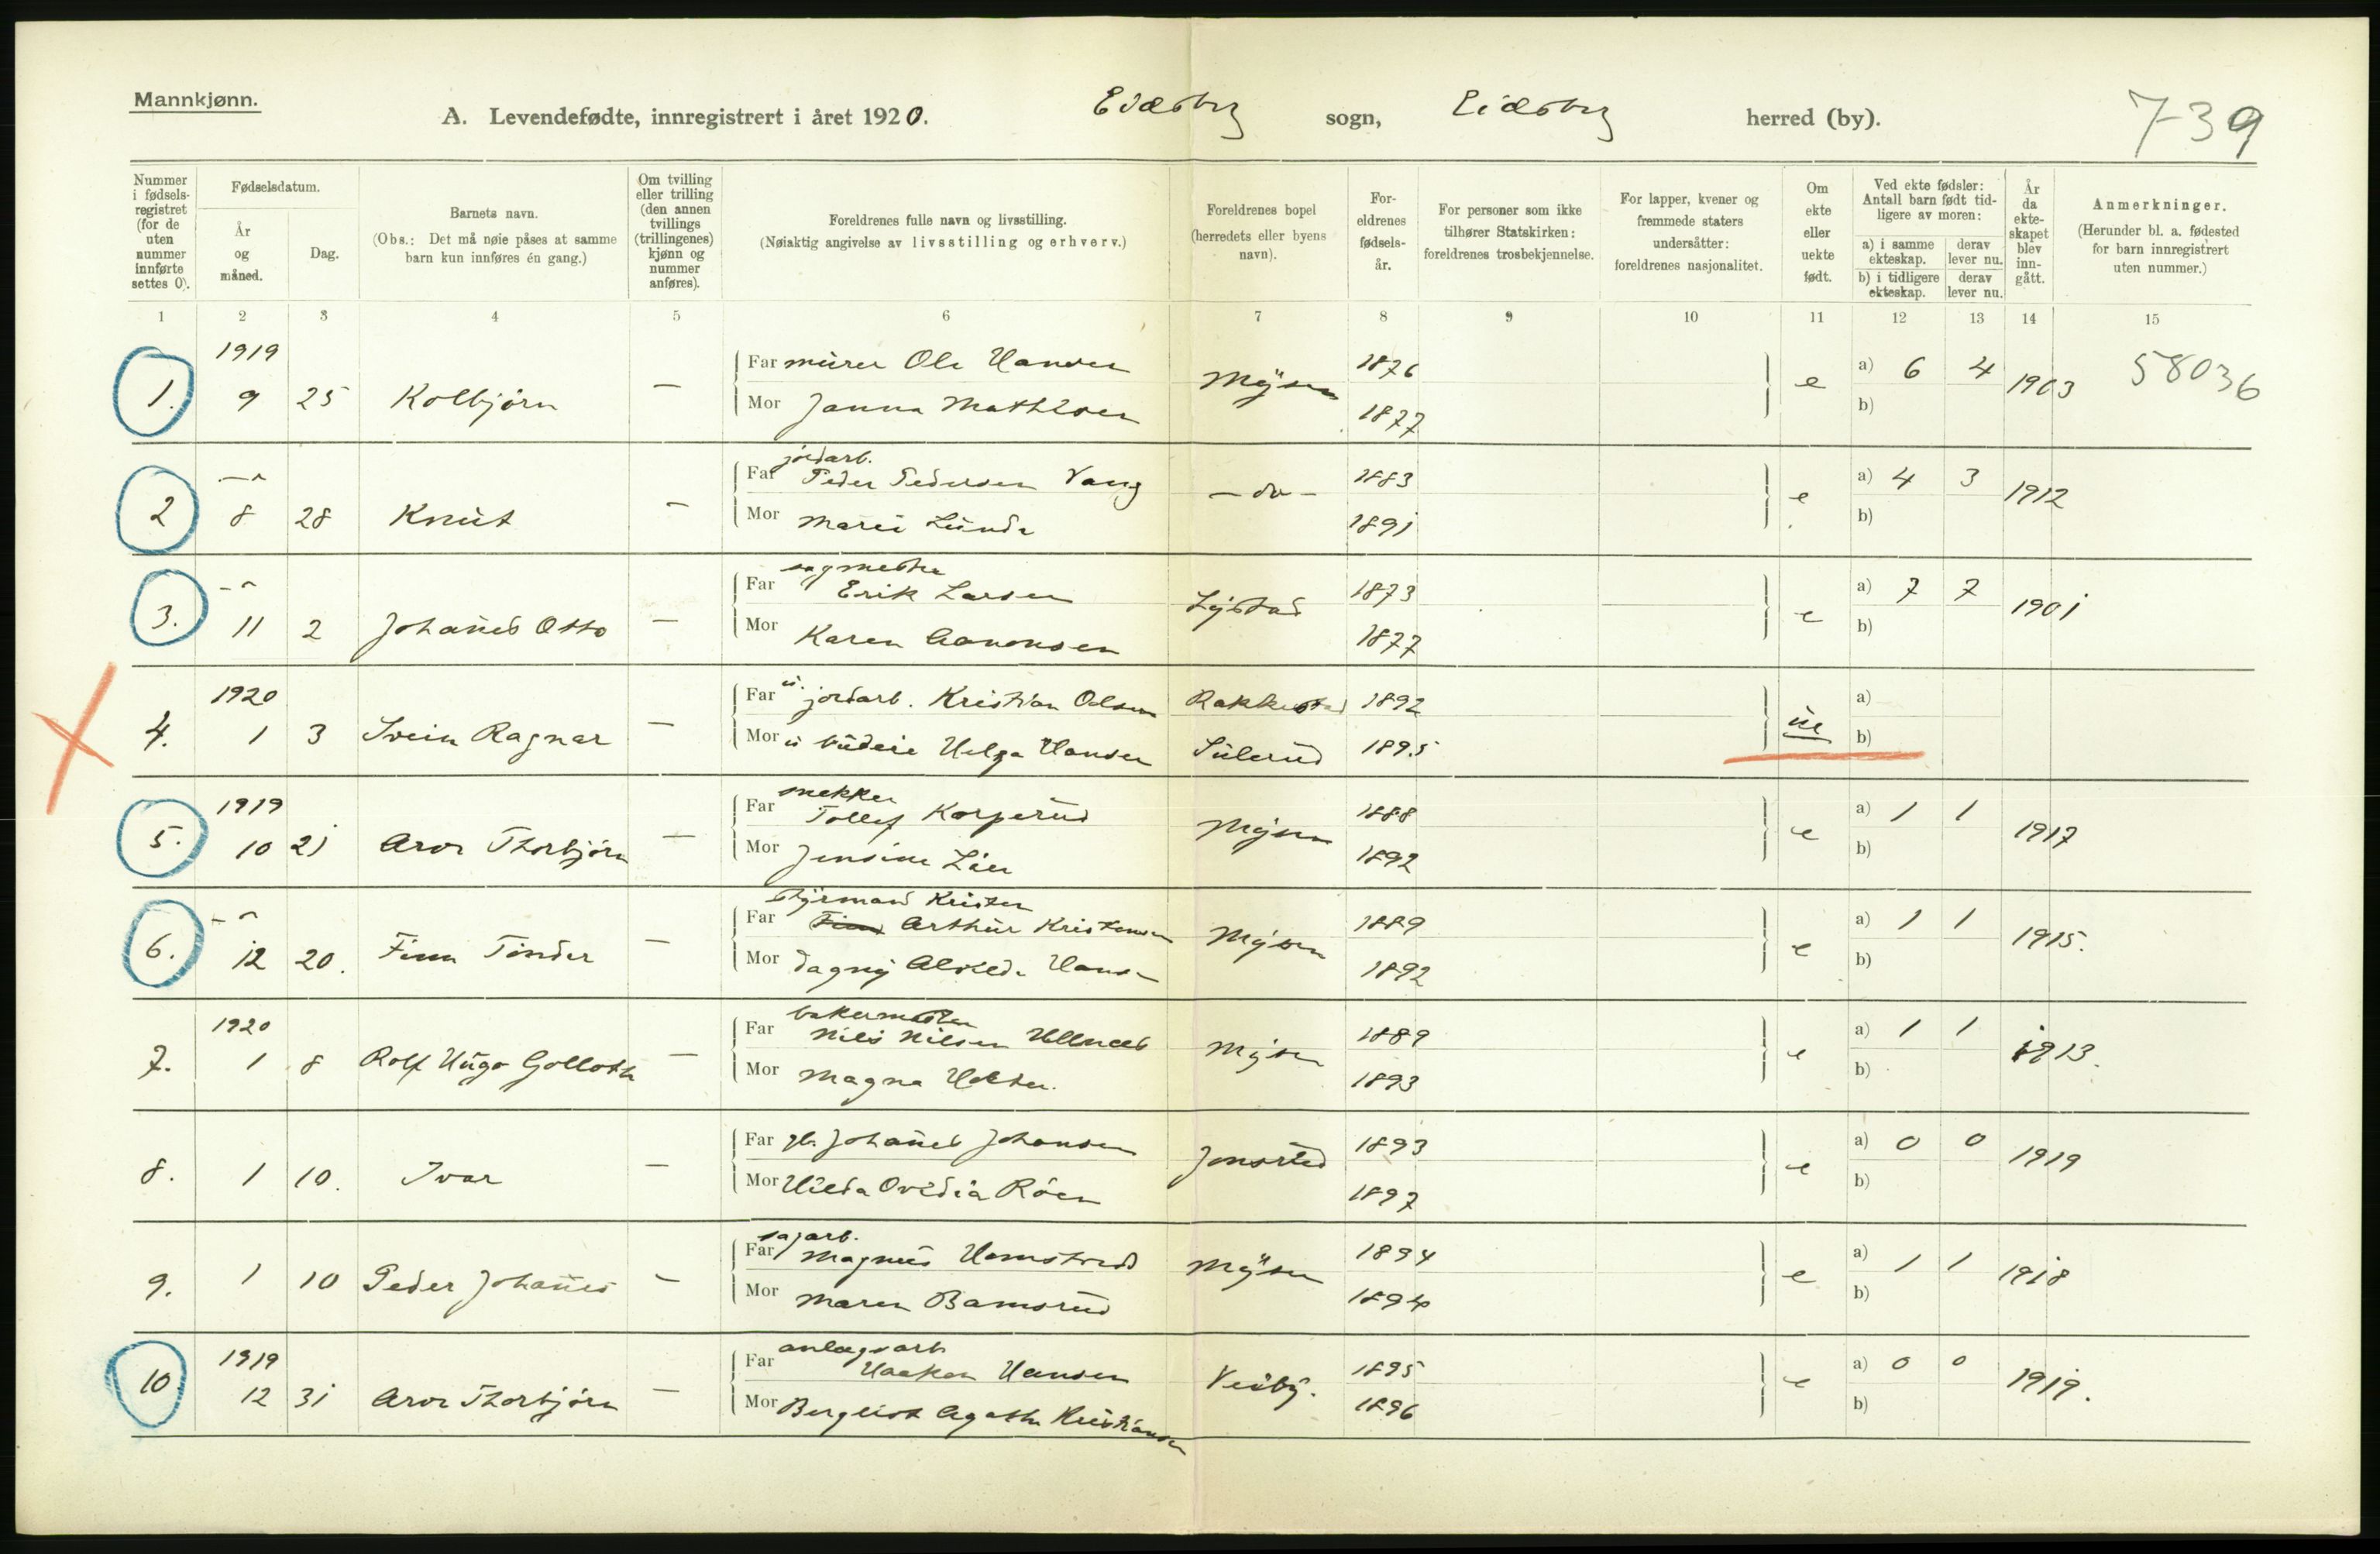 Mannkjønn.
A. Levendefødte, innregistrert i året 1920. Eidsberg sogn, Eidsberg herred (by). 739
Nummer i fødsels-registret (for de uten nummer innførte settes 0).
Fødselsdatum.
År og måned.
Dag.
Barnets navn.
(Obs.: Det må nøie påses at samme barn kun innføres én gang.)
Om tvilling eller trilling (den annen tvillings (trillingenes) kjønn og nummer anføres).
Foreldrenes fulle navn og livsstilling.
(Nøiaktig angivelse av livsstilling og erhverv.)
Foreldrenes bopel (herredets eller byens navn).
For-eldrenes fødsels-år.
For personer som ikke tilhører Statskirken: foreldrenes trosbekjennelse.
For lapper, kvener og fremmede staters undersåtter: foreldrenes nasjonalitet.
Om ekte eller uekte født.
Ved ekte fødsler: Antall barn født tid-ligere av moren:
a) i samme ekteskap. derav lever nu.
b) i tidligere ekteskap. derav lever nu.
År da ekte-skapet blev inn-gått.
Anmerkninger.
(Herunder bl. a. fødested for barn innregistrert uten nummer.)
1 2 3 4 5 6 7 8 9 10 11 12 13 14 15
1919
1. 9 25 Kolbjørn —
Far murer Ole Hansen Mysen 1876 e a) 6 4 1903 58036
Mor Janna Mathisen 1877 b)
— " jordarb.
2 8 28 Knut —
Far Peder Pedersen Vang — do — 1883 e a) 4 3 1912
Mor Marei Lunde 1891 b)
— " sagmester
3. 11 2 Johannes Otto —
Far Erik Larsen 1873 e a) 7 7 1901
Mor Karen Aanonsen 1877 b)
1920
4. 1 3 Svein Ragnar —
Far u. jordarb. Kristian Olsen Rakkestad 1892 ue a)
Mor u budeie Helga Hansen Sulerud 1895 b)
1919 snekker
5. 10 21 Arvr Thorbjørn —
Far Tollef Korperud Mysen 1888 e a) 1 1 1917
Mor Jensine Lier 1892 b)
— " styrmand Kristen
6. 12 20. Finn Tinder —
Far Finn Arthur Kristensen Mysen 1889 e a) 1 1 1915.
Mor Dagny Hansen 1892 b)
1920 bakermester
7. 1 8 Rolf Hugo Golloth —
Far Nils Nilsen Mysen 1889 e a) 1 1 1913.
Mor Magna 1893 b)
8. 1 10. Ivar —
Far gb. Johannes Johansen Jonsrud 1893 e a) 0 0 1919
Mor Hilda Ovidia Röen 1897 b)
sagarb.
9. 1 10 Peder Johannes —
Far Magnus Mysen 1894 e a) 1 1 1918
Mor Maren Bamsrud 1894 b)
1919 anlægsarb
10 12 31 Arvr Thorbjørn —
Far Haakon Hansen Veiby. 1895 e a) 0 0 1919.
Mor Bergliot Agathe Kristiansen 1896 b)